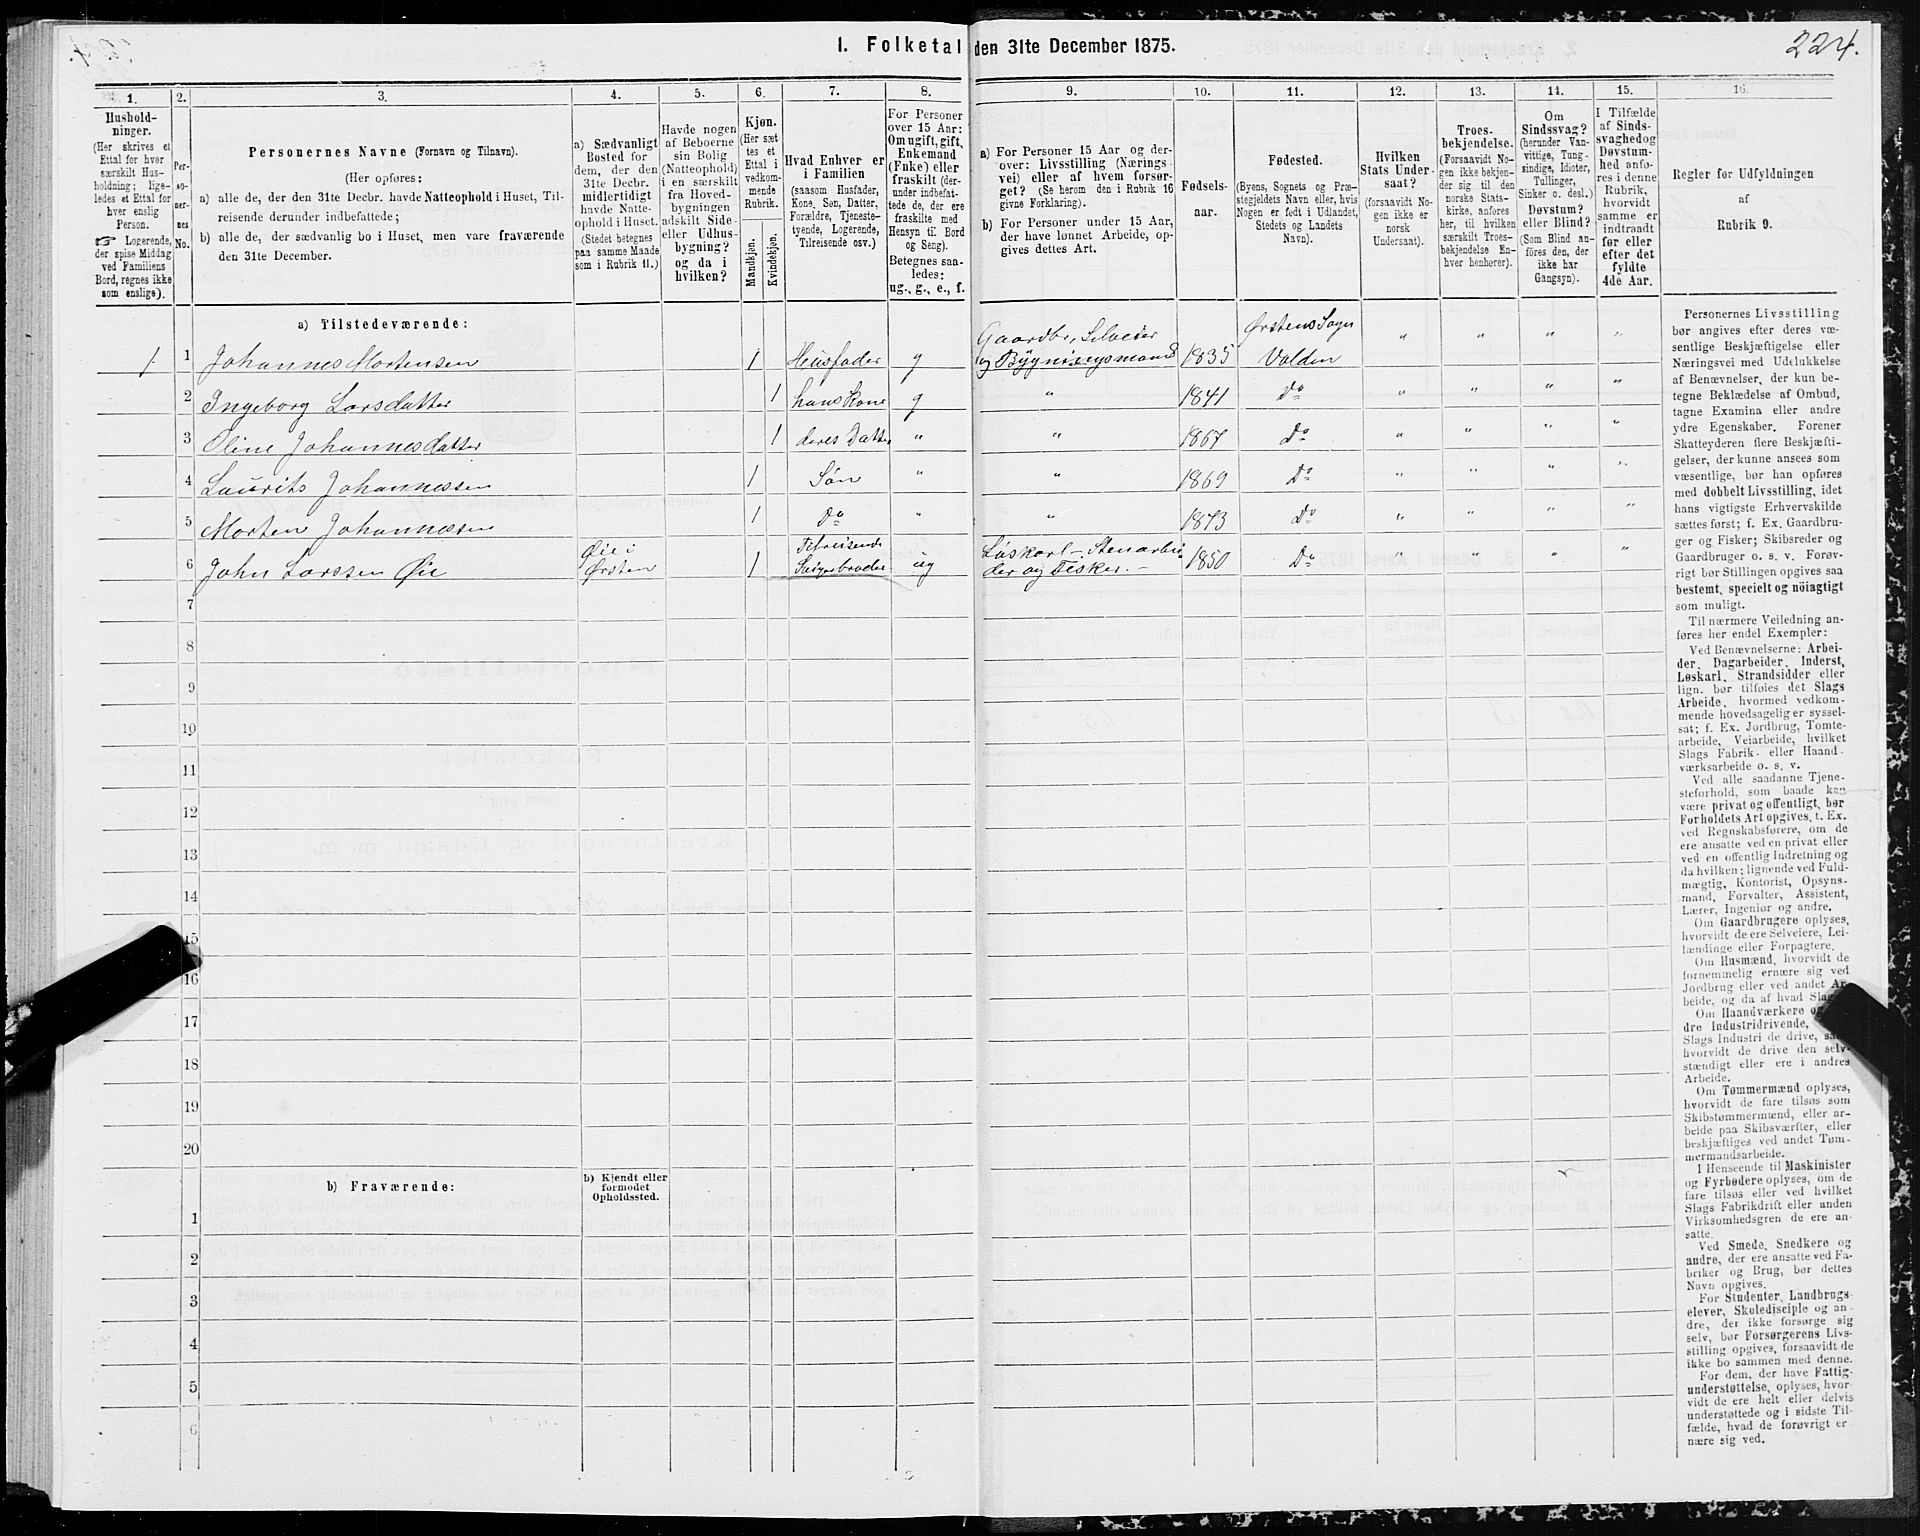 I. Folketal den 31te December 1875.
224.
1.
Hushold-
ninger.
(Her skrives et
Ettal for hver
særskilt Hus-
holdning; lige-
ledes et Ettal for
hver enslig
Person.
☞ Logerende,
der spise Middag
ved Familiens
Bord, regnes ikke
som enslige).
2.
Per-
so-
ner-
nes
No.
3.
Personernes Navne (Fornavn og Tilnavn).
(Her opføres:
a) alle de, der den 31te Decbr. havde Natteophold i Huset, Til-
reisende derunder indbefattede;
b) alle de, der sædvanlig bo i Huset, men vare fraværende
den 31te December.
4.
a) Sædvanligt
Bosted for
dem, der den
31te Decbr.
midlertidigt
havde Natte-
ophold i Huset.
(Stedet betegnes
paa samme Maade
som i Rubrik 11.)
5.
Havde nogen
af Beboerne
sin Bolig
(Natteophold)
i en særskilt
fra Hoved-
bygningen
adskilt Side-
eller Udhus-
bygning?
og da i
hvilken?
6.
Kjøn.
(Her sæt
tes et
Ettal i
vedkom-
mende
Rubrik.
Mandkjøn.
Kvindekjøn.
7.
Hvad Enhver er
i Familien
(saasom Husfader,
Kone, Søn, Datter,
Forældre, Tjeneste-
tyende, Logerende,
Tilreisende osv.)
8.
For Personer
over 15 Aar:
Om ugift, gift,
Enkemand
(Enke) eller
fraskilt (der-
under indbefat-
tede de, der ere
fraskilte med
Hensyn til Bord
og Seng).
Betegnes saa-
ledes:
ug., g., e., f.
9.
a) For Personer 15 Aar og der-
over: Livsstilling (Nærings-
vei) eller af hvem forsør-
get? (Se herom den i Rubrik 16
givne Forklaring).
b) For Personer under 15 Aar,
der have lønnet Arbeide, op-
gives dettes Art.
10.
Fødsels-
aar.
11.
Fødested.
(Byens, Sognets og Præ-
stegjeldets Navn eller, hvis
Nogen er født i Udlandet,
Stedets og Landets
Navn).
12.
Hvilken
Stats Under-
saat?
(forsaavidt No-
gen ikke er
norsk
Undersaat).
13.
Troes-
bekjendelse.
(Forsaavidt No-
gen ikke bekjen-
der sig til den
norske Stats-
kirke, anføres
her, til hvilken
særskilt Troes-
bekjendelse En-
hver henhører).
14.
Om
Sindssvag?
(herunder Van-
vittige, Tung-
sindige, Idioter,
Tullinger,
Sinker o. desl.)
Døvstum?
eller Blind?
(Som Blind an-
føres den, der
ikke har
Gangsyn).
15.
I Tilfælde
af Sinds-
svaghed og
Døvstum-
hed anfø-
res i denne
Rubrik,
hvorvidt
samme er
indtraadt
før eller
efter det
fyldte
4de Aar.
16.
Regler for Udfyldningen
af
Rubrik 9.
a) Tilstedeværende:
1 1 Johannes Mortensen 1 Husfader g Gaardbr, Selveier og Bygningsmand 1835 Ørstens Sogn Volden " " " "
2 Ingeborg Larsdatter 1 hans Kone g " 1841 Do " " " "
3 Oline Johannesdatter 1 deres Datter " " 1867 Do " " " "
4 Laurits Johannessen 1 Søn " " 1869 Do " " " "
5 Morten Johannessen 1 Do " " 1873 Do " " " "
6 John Larssen Øie Øie i Ørsten 1 Tilreisende Svigerbroder ug Løskarl – Stenarbeider og Fisker. – 1850 Do " " " "
7
8
9
10
11
12
13
14
15
16
17
18
19
20
b) Fraværende:
b) Kjendt eller
formodet
Opholdssted.
1
2
3
4
5
6
Personernes Livsstilling
bør angives efter deres væ-
sentlige Beskjæftigelse eller
Næringsvei med Udelukkelse
af Benævnelser, der kun be-
tegne Beklædelse af Ombud,
tagne Examina eller andre
ydre Egenskaber. Forener
Skatteyderen flere Beskjæfti-
gelser, der kunne ansees som
væsentlige, bør han opføres
med dobbelt Livsstilling, idet
hans vigtigste Erhvervskilde
sættes først; f. Ex. Gaardbru-
ger og Fisker; Skibsreder og
Gaardbruger o. s. v. Forøv-
rigt bør Stillingen opgives saa
bestemt, specielt og nöiagtigt
som muligt.
Til nærmere Veiledning an-
føres her endel Exempler:
Ved Benævnelserne: Arbei-
der, Dagarbeider, Inderst,
Løskarl, Strandsidder eller
lign. bør tilføies det Slags
Arbeide, hvormed vedkom-
mende hovedsagelig er syssel-
sat; f. Ex. Jordbrug, Tomte-
arbeide, Veiarbeide, hvilket
Slags Fabrik- eller Haand-
værksarbeide o. s. v.
Ved alle saadanne Tjene-
steforhold, som baade kan
være privat og offentligt, bør
Forholdets Art opgives, t. Ex.
ved Regnskabsførere, om de
ere ansatte ved en privat eller
ved en offentlig Indretning og
da hvilken; lignende ved Fuld-
mægtig, Kontorist, Opsyns-
mand, Forvalter, Assistent,
Lærer, Ingeniør og andre.
Om Gaardbrugere oplyses,
hvorvidt de ere Selveiere, Lei-
lændinge eller Forpagtere.
Om Husmænd, hvorvidt de
fornemmelig ernære sig ved
Jordbrug eller ved andet Ar-
beide, og da af hvad Slags.
Om Haandværkere og
dre Industridrivende,
Slags Industri de drive,
hvorvidt de drive den selv-
stændigt eller ere i andres
Arbeide.
Om Tømmermænd oplyses,
hvorvidt de fare tilsøs som
Skibstømmermænd, eller ar-
beide paa Skibsværfter, eller
beskjæftiges ved andet Tøm-
mermandsarbeide.
I Henseende til Maskinister
og Fyrbødere oplyses, om de
fare tilsøs eller ved hvilket
Slags Fabrikdrift eller anden
Virksomhedsgren de ere an-
satte.
Ved Smede, Snedkere og
andre, der ere ansatte ved Fa-
briker og Brug, bør dettes
Navn opgives.
For Studenter, Landbrugs-
elever, Skoledisciple og an-
dre, der ikke forsørge sig
selv, bør Forsørgerens Livs-
stilling opgives, forsaavidt de
ikke bo sammen med denne.
For dem, der have Fattig-
understøttelse, oplyses, hvor-
vidt de ere helt eller delvis
understøttede og i sidste Til-
fælde, hvad de forøvrigt er
nære sig ved.